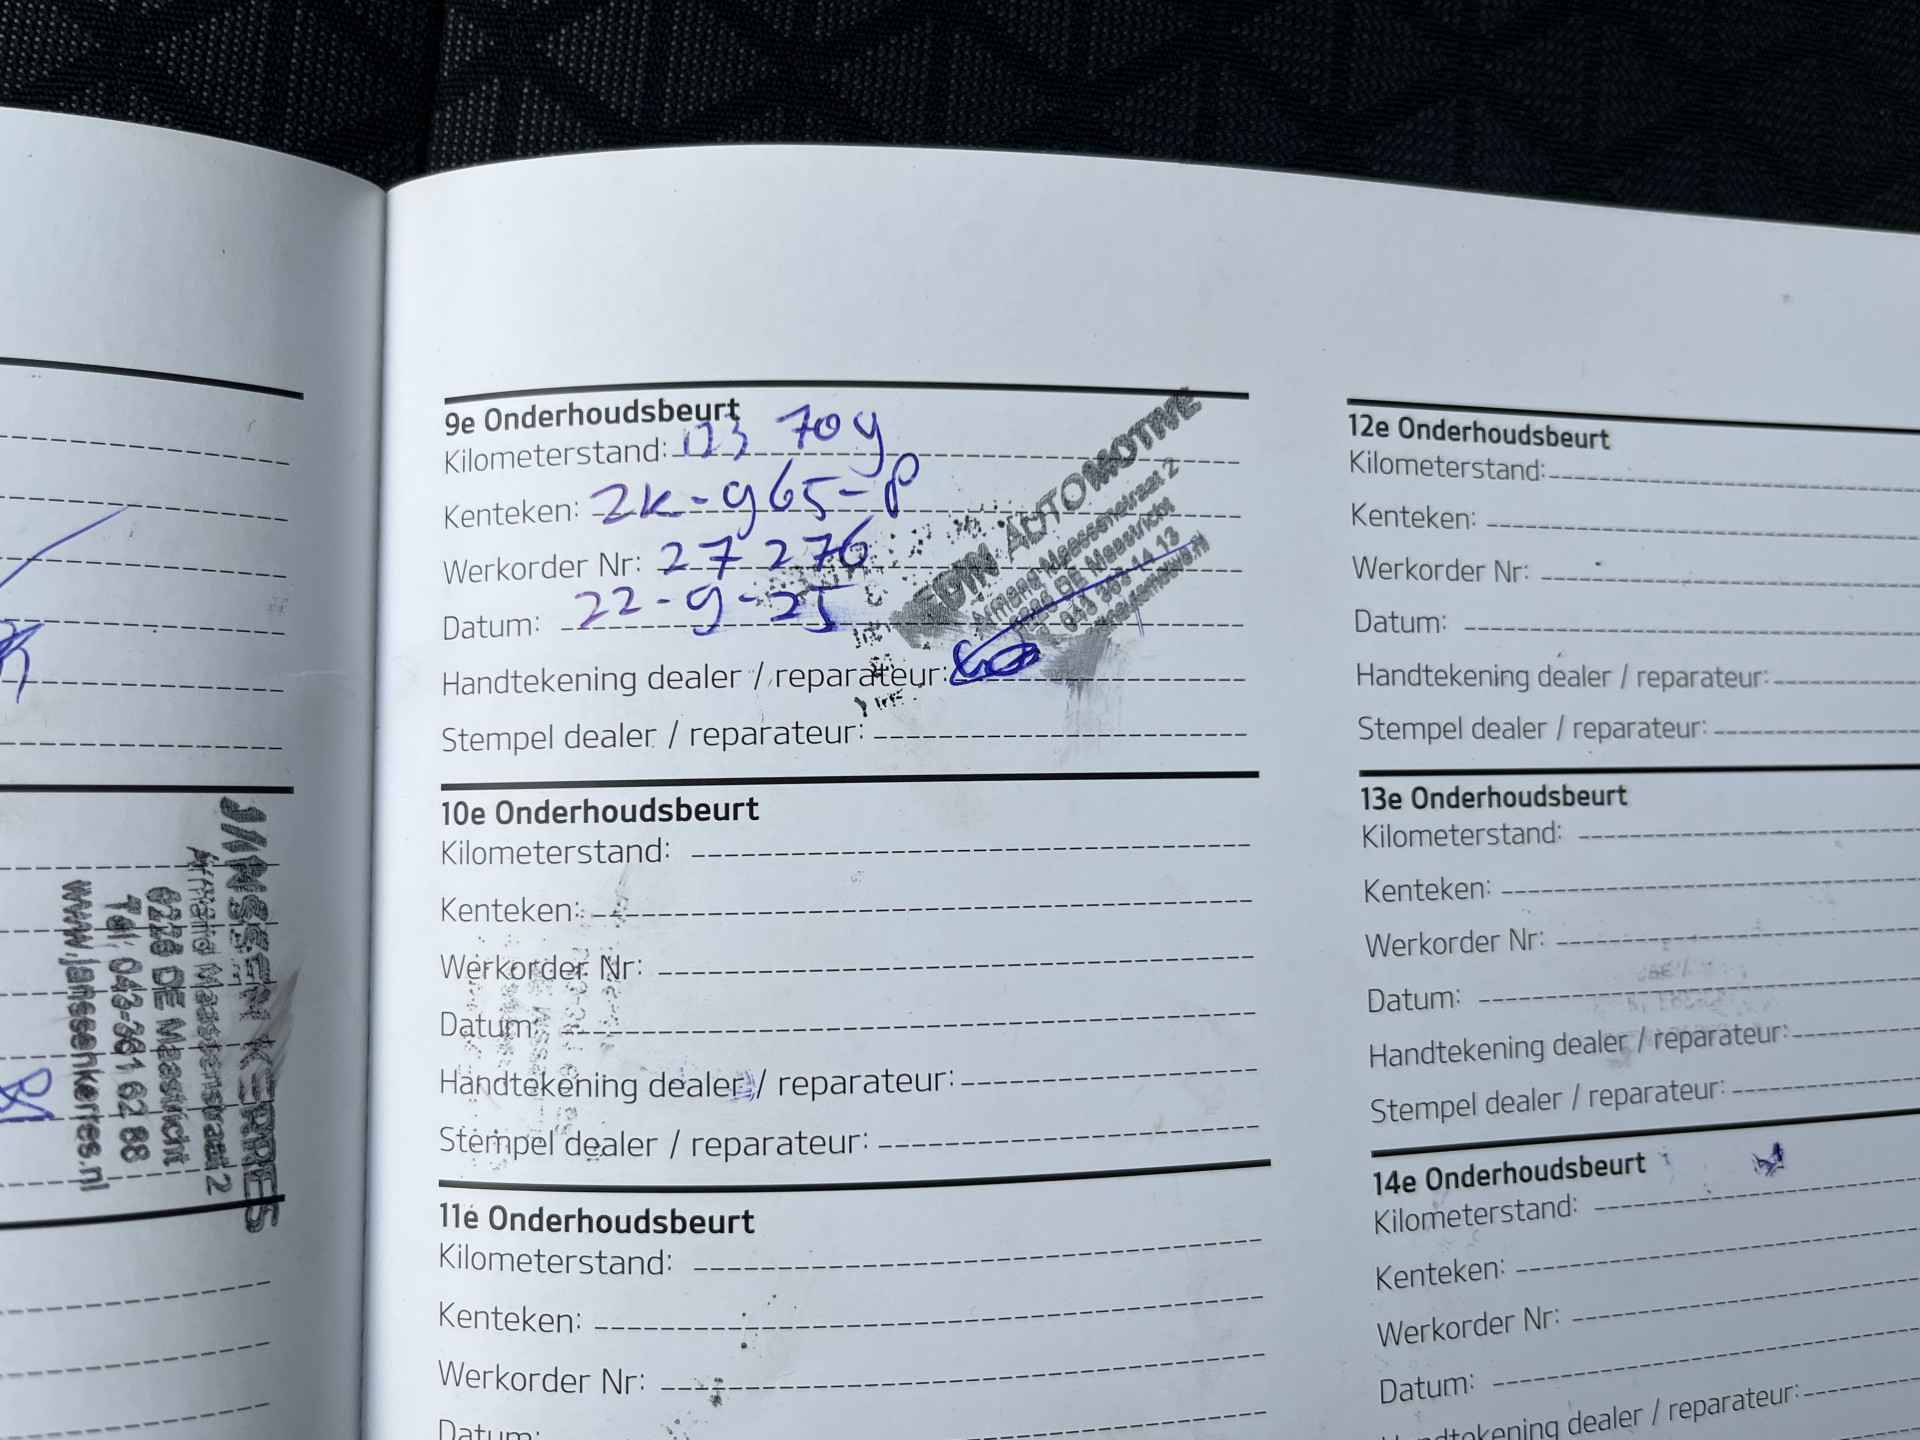 JANSSEN KERRES
Armand Maassenstraat 2
6228 DE Maastricht
Tel. 043-361 62 88
www.janssenkerres.nl
9e Onderhoudsbeurt
Kilometerstand: 123 709
Kenteken: ZK-965-P
Werkorder Nr: 27276
Datum: 22-9-25
Handtekening dealer / reparateur:
Stempel dealer / reparateur:
AUTOMOTIVE
Maastricht
10e Onderhoudsbeurt
Kilometerstand:
Kenteken:
Werkorder Nr:
Datum:
Handtekening dealer / reparateur:
Stempel dealer / reparateur:
11e Onderhoudsbeurt
Kilometerstand:
Kenteken:
Werkorder Nr:
Datum:
12e Onderhoudsbeurt
Kilometerstand:
Kenteken:
Werkorder Nr:
Datum:
Handtekening dealer / reparateur:
Stempel dealer / reparateur:
13e Onderhoudsbeurt
Kilometerstand:
Kenteken:
Werkorder Nr:
Datum:
Handtekening dealer / reparateur:
Stempel dealer / reparateur:
14e Onderhoudsbeurt
Kilometerstand:
Kenteken:
Werkorder Nr:
Datum:
Handtekening dealer / reparateur: